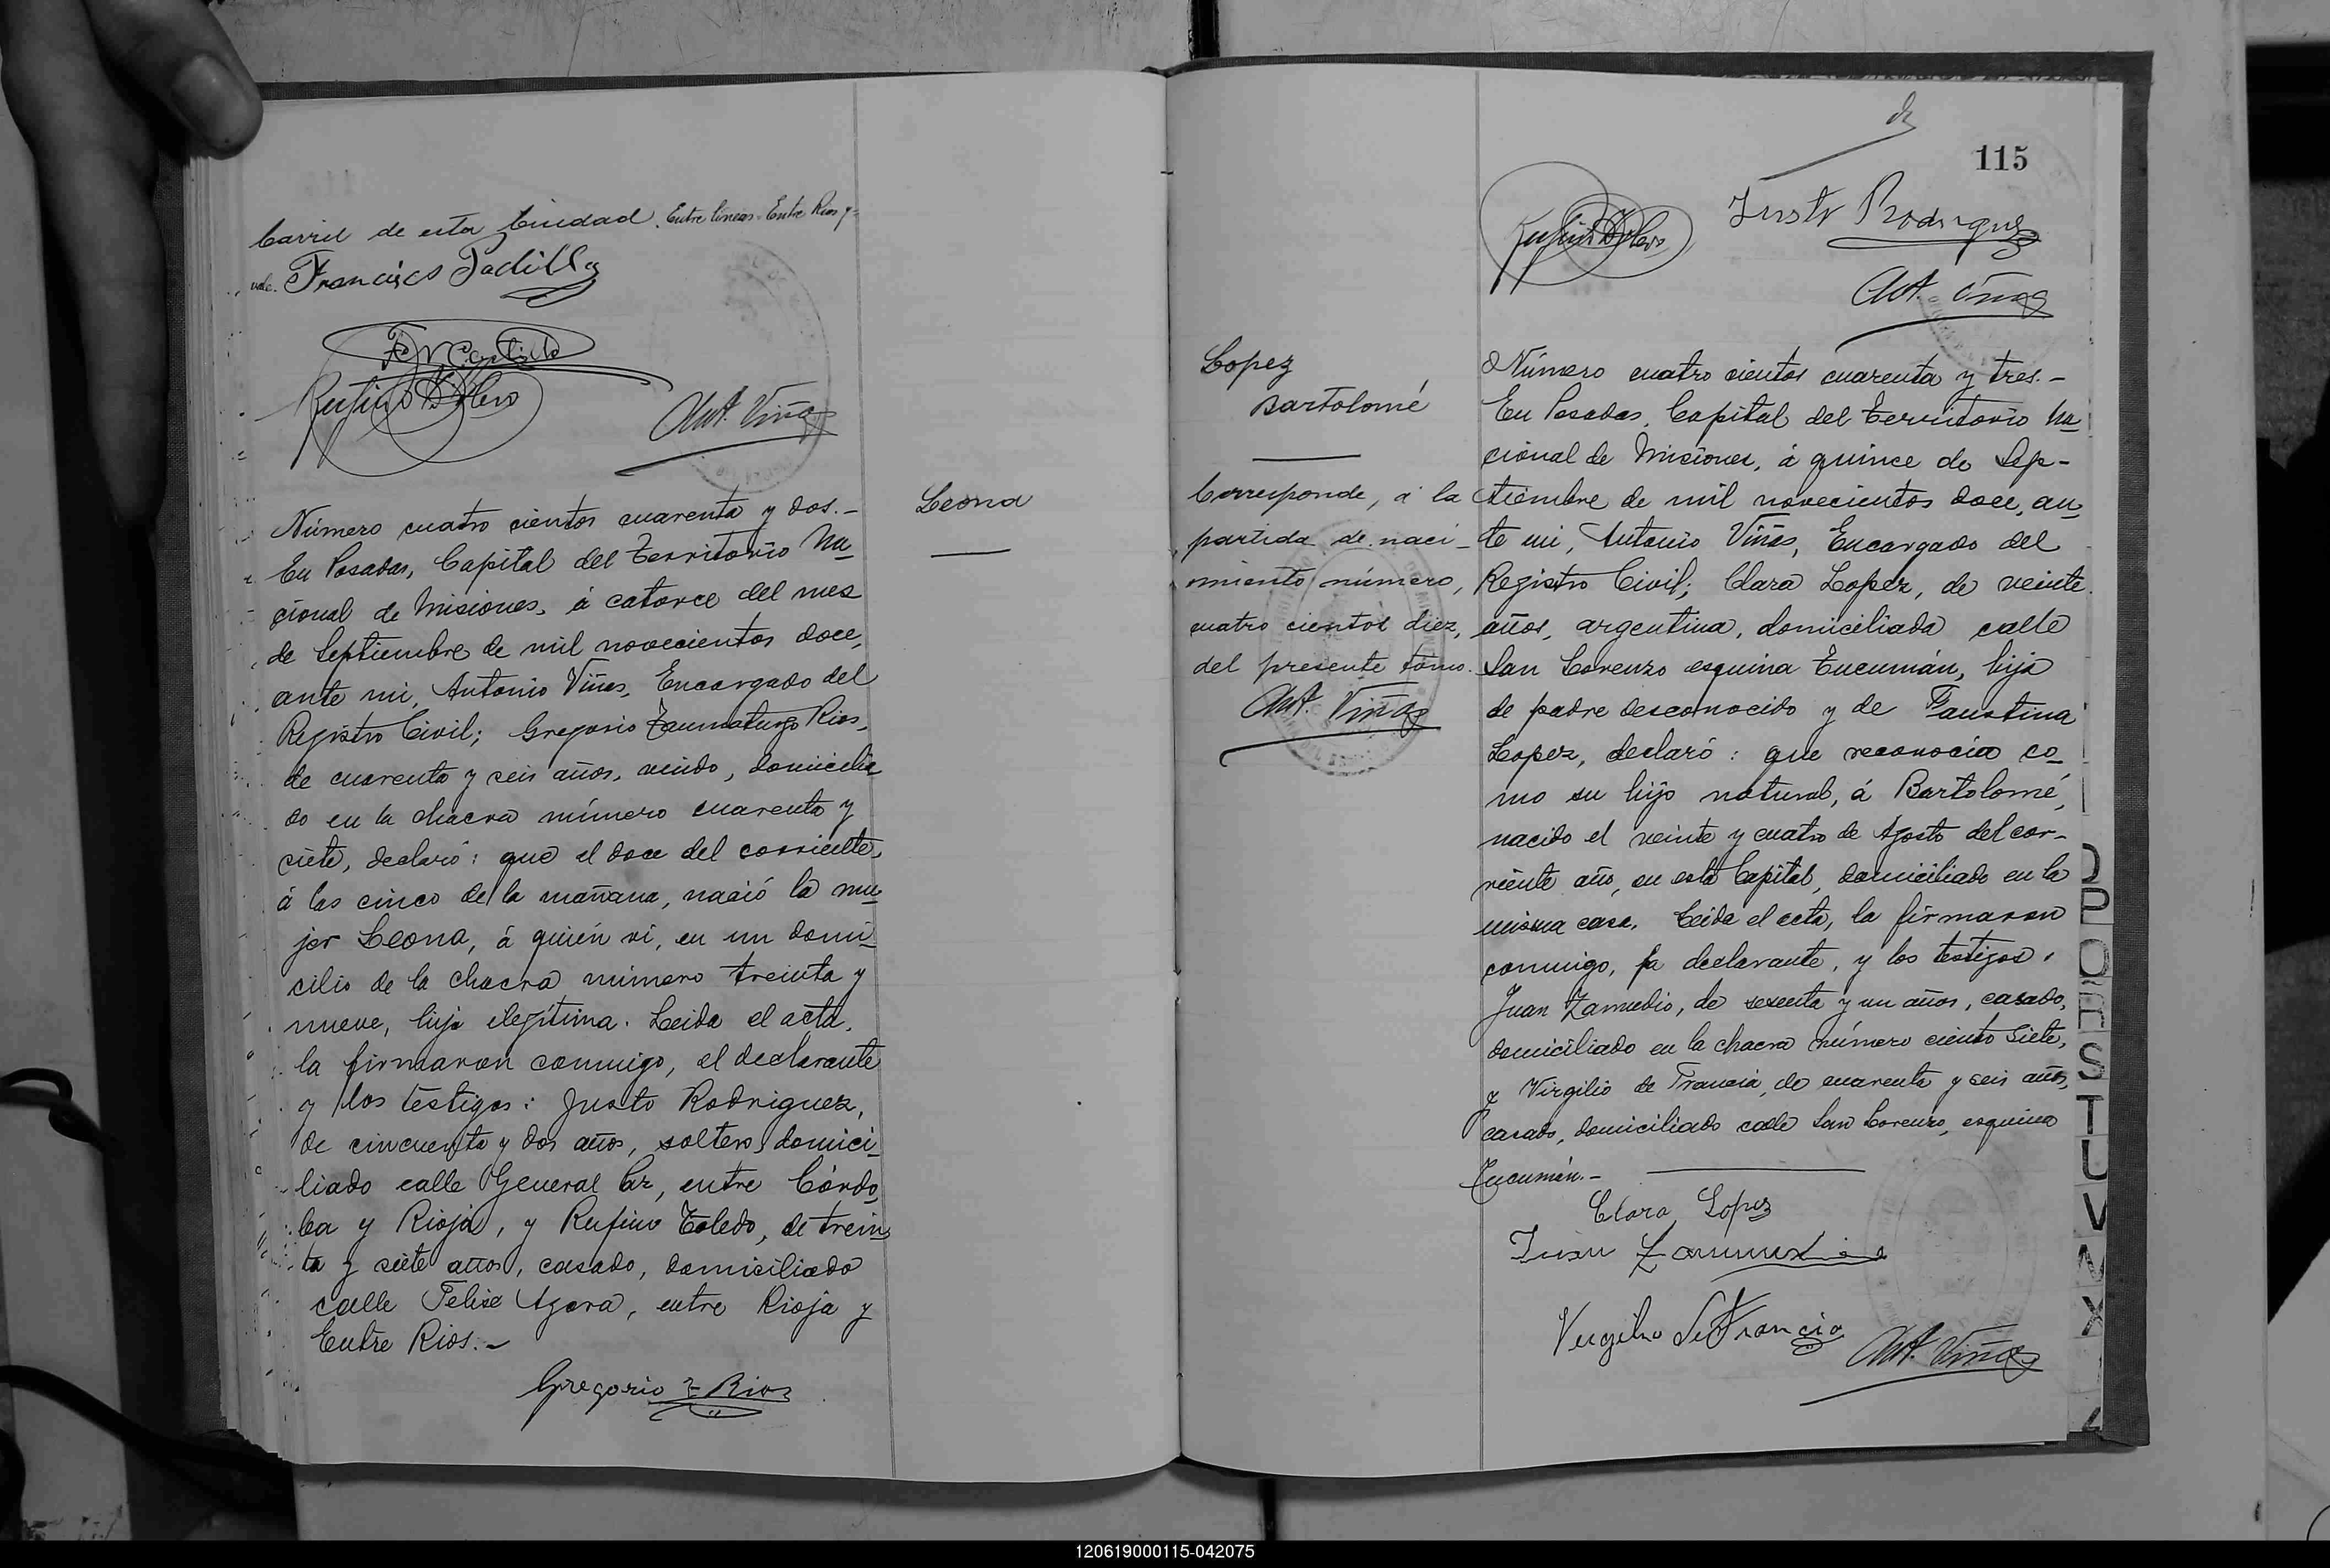 Carril de esta Ciudad. Entre líneas - Entre Rios y -
vale. Francisco Padilla
Rufino Toledo
Ant. Viñas
Leona
Número cuatro cientos cuarenta y dos.-
En Posadas, Capital del Territorio Na
cional de Misiones, á catorce del mes
de Septiembre de mil novecientos doce,
ante mi, Antonio Viñas, Encargado del
Registro Civil; Gregorio Taumaturgo Rios,
de cuarenta y seis años, viudo, domicilia
do en la chacra número cuarenta y
siete, declaró: que el doce del corriente,
á las cinco de la mañana, nació la mu
jer Leona, á quién ví, en un domi
cilio de la chacra número treinta y
nueve, hija ilegítima. Leida el acta,
la firmaron conmigo, el declarante
y los testigos: Justo Rodriguez,
de cincuenta y dos años, soltero, domici
liado calle General Paz, entre Córdo
ba y Rioja, y Rufino Toledo, de trein
ta y siete años, casado, domiciliado
calle Felix Azara, entre Rioja y
Entre Rios.-
Gregorio T Rios
115
Justo Rodriguez
Ant. Viñas
Lopez
Bartolomé
Corresponde, á la
partida de naci-
miento número,
cuatro cientos diez,
del presente tomo.
Ant. Viñas
Número cuatro cientos cuarenta y tres.-
En Posadas, Capital del Territorio Na
cional de Misiones, á quince de Sep-
tiembre de mil novecientos doce, an
te mi, Antonio Viñas, Encargado del
Registro Civil; Clara Lopez, de veinte
años, argentina, domiciliada calle
San Lorenzo esquina Tucumán, hija
de padre desconocido y de Faustina
Lopez, declaró: que reconocía co
mo su hijo natural, á Bartolomé,
nacido el veinte y cuatro de Agosto del cor-
riente año, en esta Capital, domiciliado en la
misma casa. Leida el acta, la firmaron
conmigo, la declarante, y los testigos,
Juan Zamudio, de sesenta y un años, casado,
domiciliado en la chacra número ciento siete,
y Virgilio de Francia, de cuarenta y seis años,
casado, domiciliado calle San Lorenzo, esquina
Tucumán.-
Clara Lopez
Juan Zamudio
Virgilio de Francia
Ant. Viñas
O
P
Q
R
S
T
U
V
X
Z
120619000115-042075